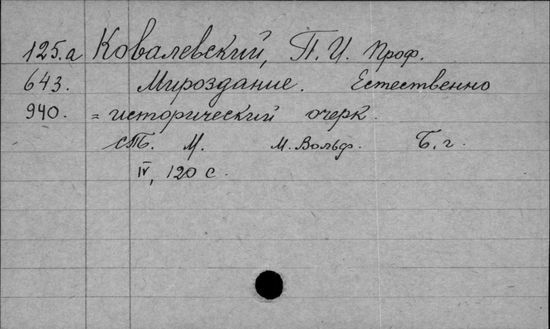 125.a Ковалевский, П. И. Проф.
643. Мироздание. Естественно
940. = исторический очерк.
СПб. М. М. Вольф. Б. г.
IV, 120 с.